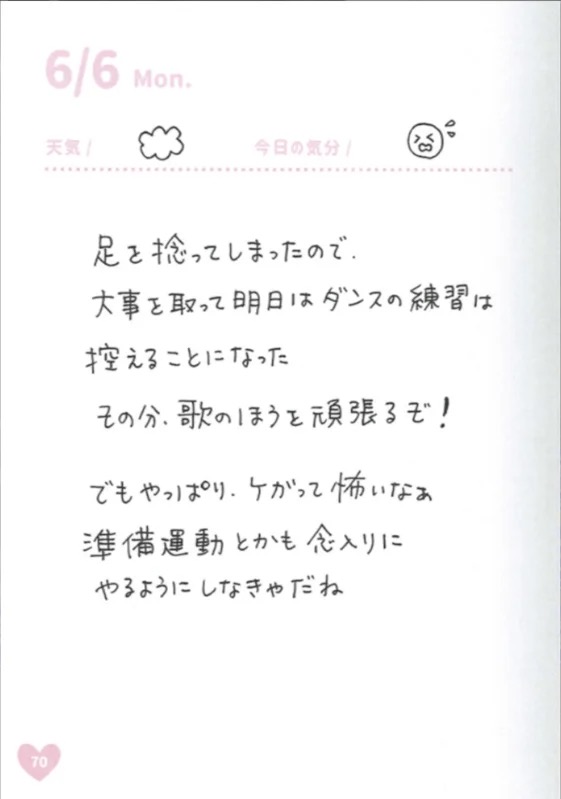 6/6 Mon.
天気/ 今日の気分/
足を捻ってしまったので、
大事を取って明日はダンスの練習は
控えることになった
その分、歌のほうを頑張るぞ!
でもやっぱり、ケガって怖いなぁ
準備運動とかも念入りに
やるようにしなきゃだね
70